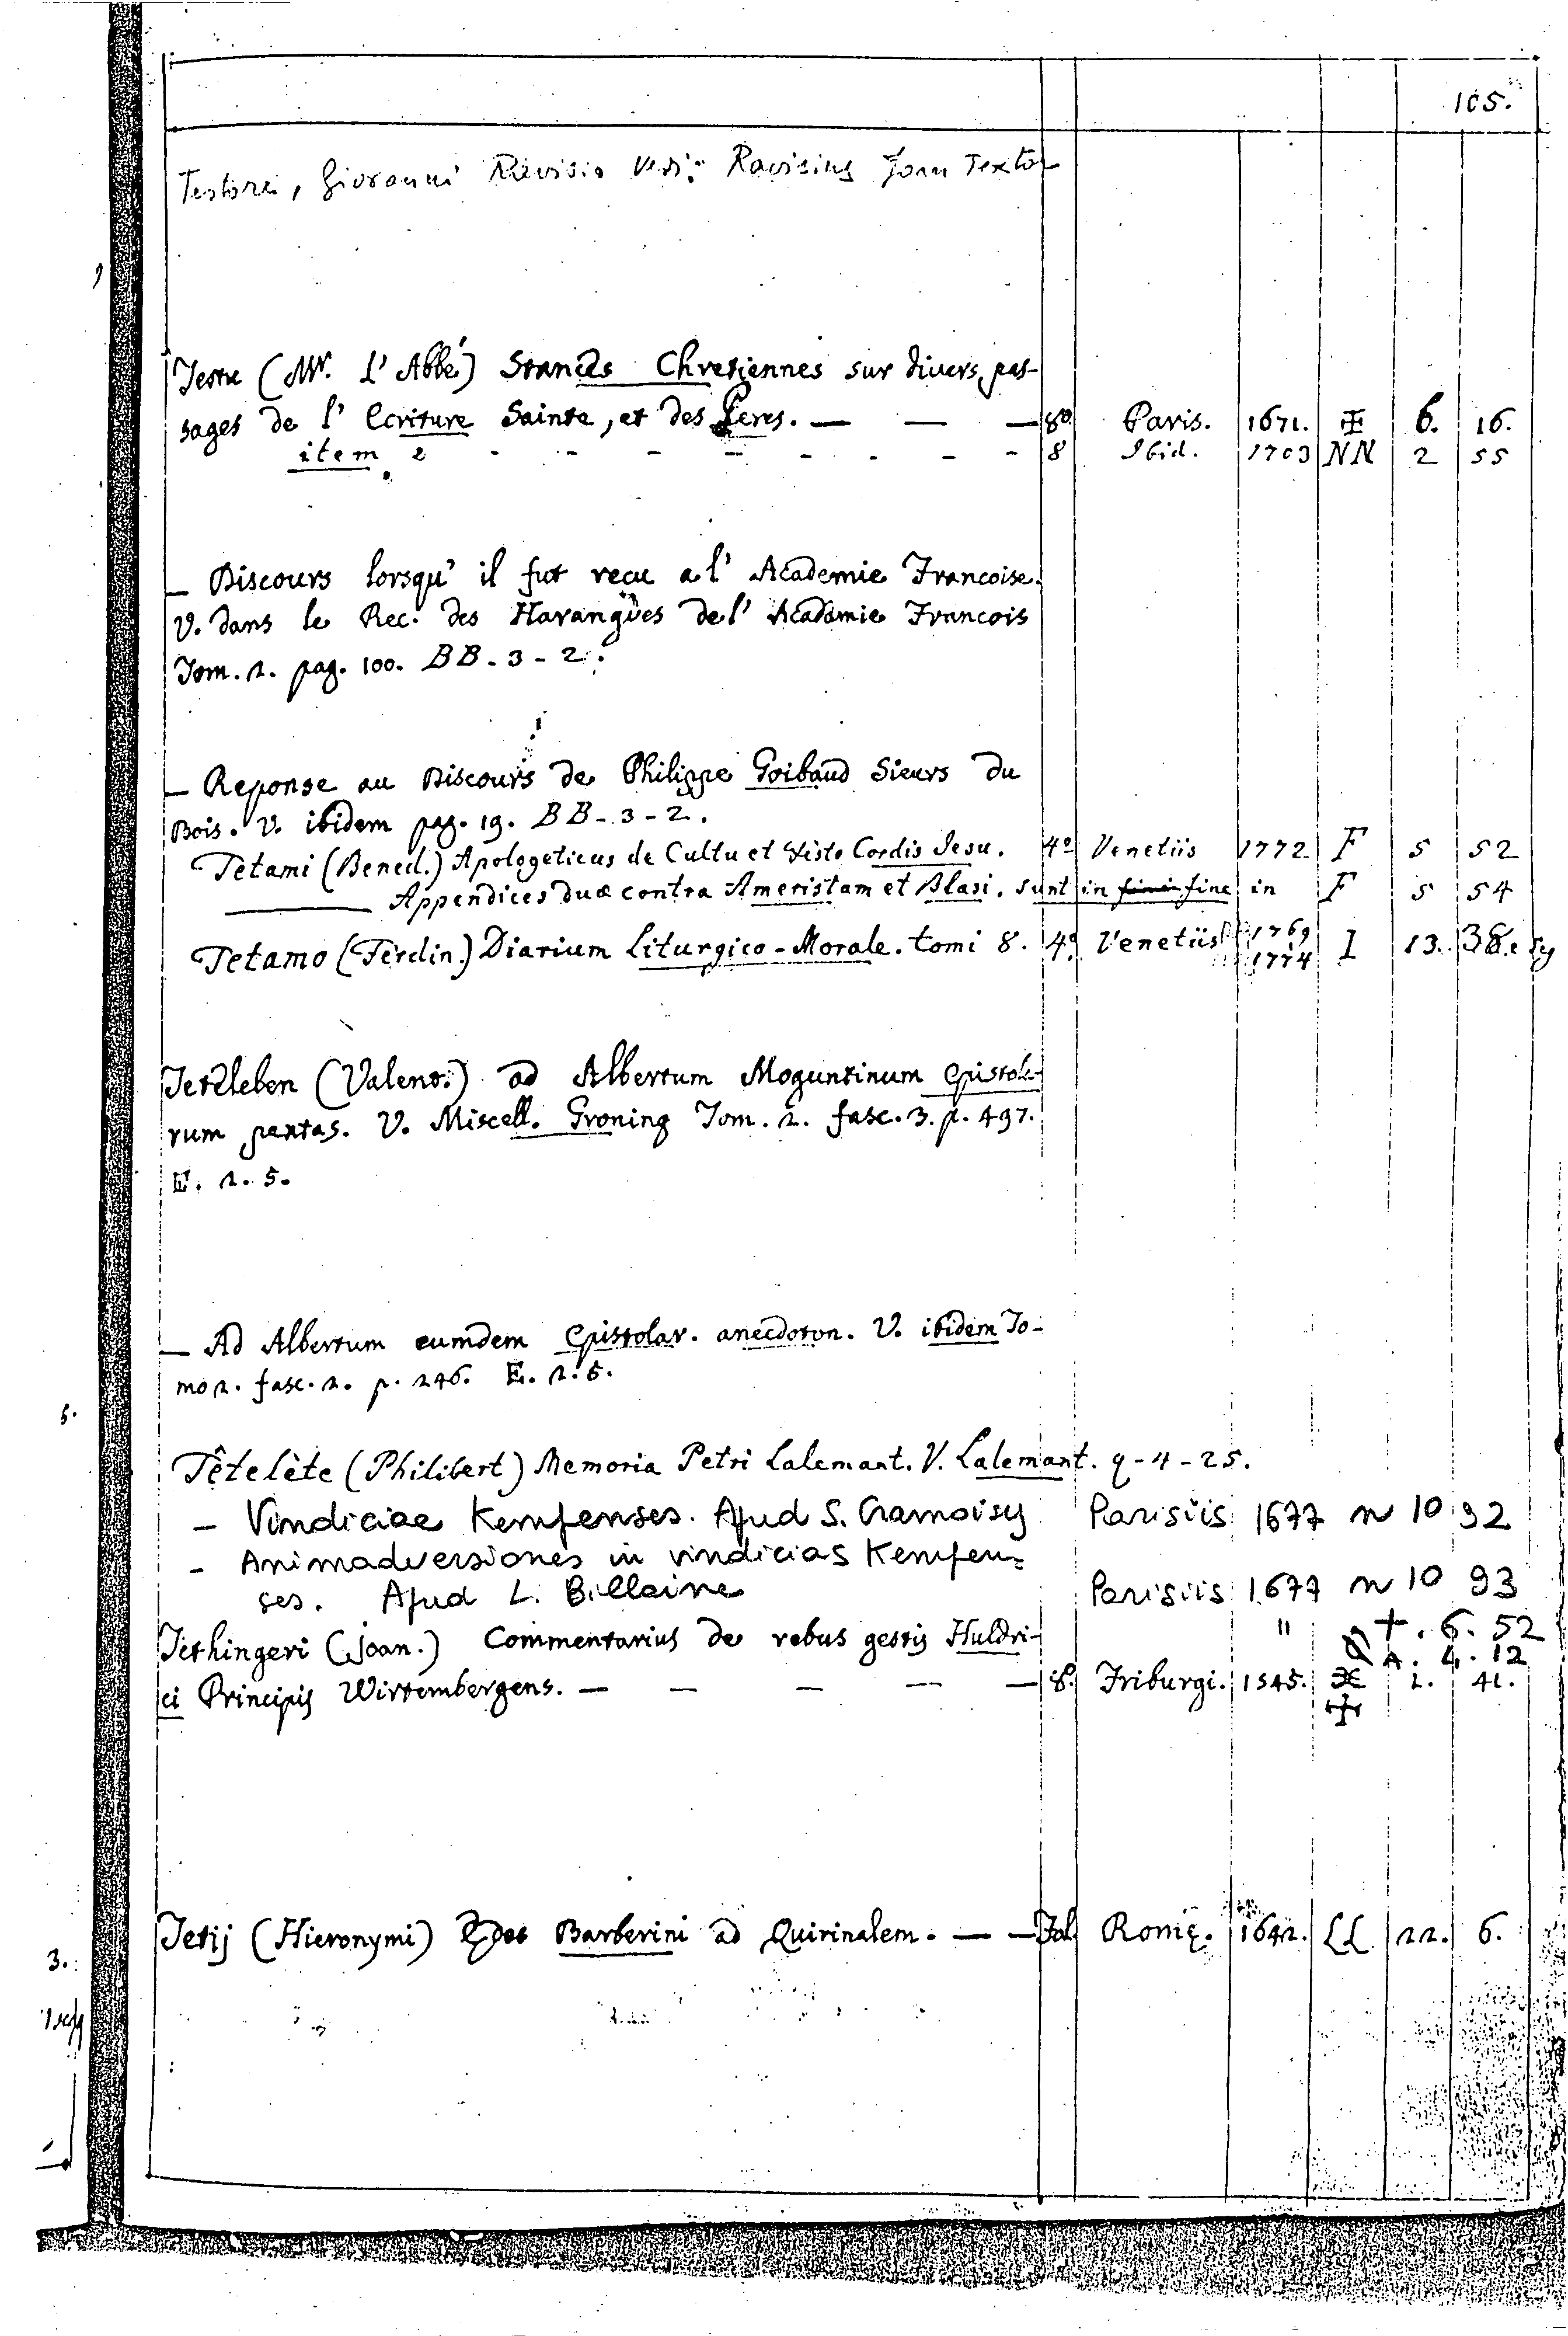 105.
Testorei, Giovanni Ravisio Vedi: Ravisius Joan Textor
Testu (Mr. l' Abbé) Stances Chretiennes sur divers pas-
sages de l' Ecriture Sainte, et des Peres. — — — 8o Paris. 1671. 6. 16.
item 2 - - - - - - - - 8 Ibid. 1703 NN 2 55
— Discours lorsqu' il fut recu a l' Academie Francoise.
V. dans le Rec. des Harangües de l' Academie Francois
Tom. 2. pag. 100. BB-3-2.
— Reponse au Discours de Philippe Goibaud Sieurs du
Bois. V. ibidem pag. 19. BB-3-2.
Tetami (Bened.) Apologeticus de Cultu et Festo Cordis Jesu. 4o Venetiis 1772 F 5 52
——— Appendices duæ contra Ameristam et Blasi. sunt in fini fine in F 5 54
Tetamo (Ferdin.) Diarium Liturgico-Morale. tomi 8. 4o Venetiis 1769 1774 I 13. 38. e seg
Tetzleben (Valent.) ad Albertum Moguntinum Epistola-
rum pentas. V. Miscell. Groning Tom. 2. fasc. 3. p. 497.
E. 2. 5.
— Ad Albertum eumdem Epistolar. anecdoton. V. ibidem To-
mo 2. fasc. 2. p. 246. E. 2. 5.
Têtelète (Philibert) Memoria Petri Lalemant. V. Lalemant. q-4-25.
- Vindiciae Kempenses. Apud S. Cramoisy Parisiis 1677 n 10 92
- Animadversiones in vindicias Kempen=
ses. Apud L. Billaine Parisiis 1677 n 10 93
" +. 6. 52
Tethingeri (Joan.) Commentarius de rebus gestis Huldri-
A. 4. 12
ci Principis Wirtembergens. — — — — — 8. Friburgi. 1545. 2. 41.
Tetij (Hieronymi) Ædes Barberini ad Quirinalem. — — Fol. Romę. 1642. LL 22. 6.
3.